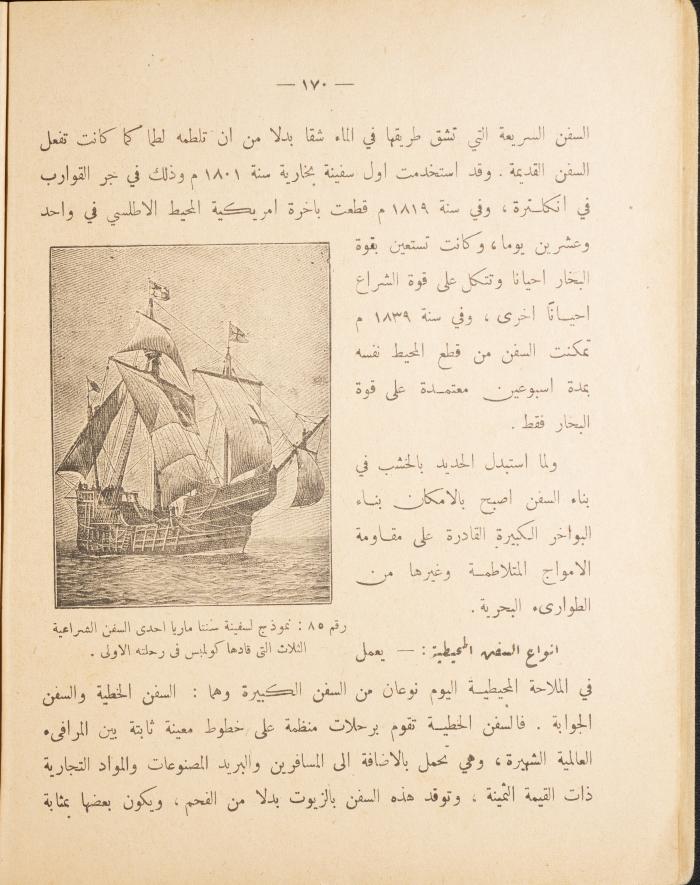 — ١٧٠ —
السفن السريعة التي تشق طريقها في الماء شقا بدلا من ان تلطمه لطما كما كانت تفعل
السفن القديمة . وقد استخدمت اول سفينة بخارية سنة ١٨٠١ م وذلك في جر القوارب
في انكلترة ، وفي سنة ١٨١٩ م قطعت باخرة امريكية المحيط الاطلسي في واحد
وعشرين يوما ، وكانت تستعين بقوة
البخار احيانا وتتكل على قوة الشراع
احيانًا اخرى ، وفي سنة ١٨٣٩ م
تمكنت السفن من قطع المحيط نفسه
بمدة اسبوعين معتمدة على قوة
البخار فقط .
ولما استبدل الحديد بالخشب في
بناء السفن اصبح بالامكان بناء
البواخر الكبيرة القادرة على مقاومة
الامواج المتلاطمة وغيرها من
الطوارىء البحرية .
رقم ٨٥ : نموذج لسفينة سنتا ماريا احدى السفن الشراعية
الثلاث التي قادها كولمبس في رحلته الاولى .
انواع السفن المحيطية : — يعمل
في الملاحة المحيطية اليوم نوعان من السفن الكبيرة وهما : السفن الخطية والسفن
الجوابة . فالسفن الخطية تقوم برحلات منظمة على خطوط معينة ثابتة بين المرافىء
العالمية الشهيرة ، وهي تحمل بالاضافة الى المسافرين والبريد المصنوعات والمواد التجارية
ذات القيمة الثمينة ، وتوقد هذه السفن بالزيوت بدلا من الفحم ، ويكون بعضها بمثابة